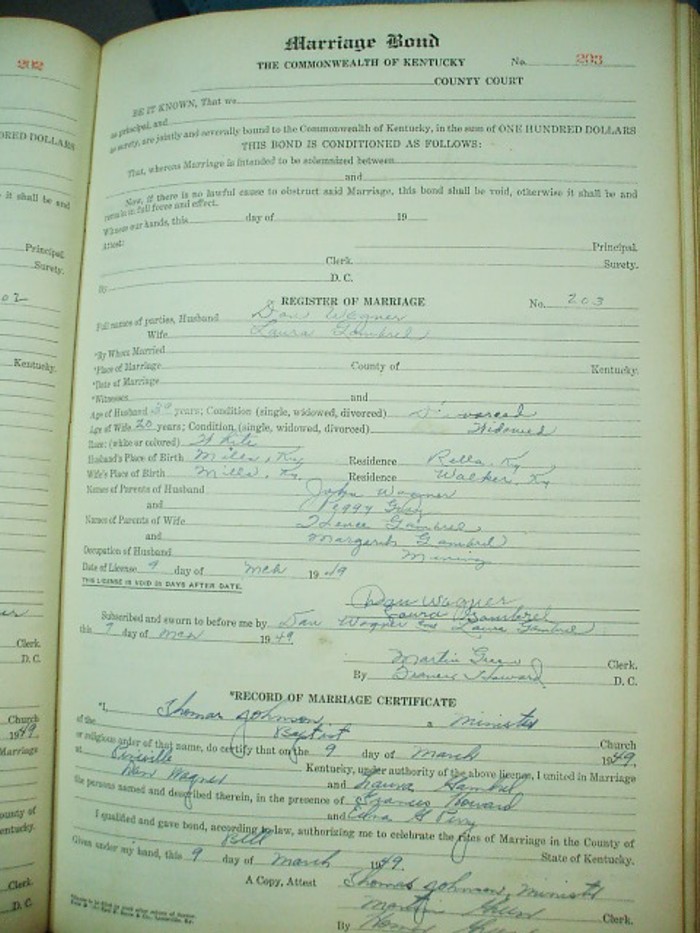 202
RED DOLLARS
it shall be and
Principal.
Surety.
Kentucky.
Clerk.
D. C.
Church
1949.
Marriage
County of
Kentucky.
Clerk.
D. C.
Marriage Bond
THE COMMONWEALTH OF KENTUCKY No. 203
COUNTY COURT
BE IT KNOWN, That we
as principal, and
as surety, are jointly and severally bound to the Commonwealth of Kentucky, in the sum of ONE HUNDRED DOLLARS
THIS BOND IS CONDITIONED AS FOLLOWS:
That, whereas Marriage is intended to be solemnized between
and
Now, if there is no lawful cause to obstruct said Marriage, this bond shall be void, otherwise it shall be and
remain in full force and effect.
Witness our hands, this day of 19
Attest: Principal.
Clerk. Surety.
By D. C.
REGISTER OF MARRIAGE No. 203
Full names of parties, Husband Dan Wagner
Wife Laura Gambrel
*By Whom Married
*Place of Marriage County of Kentucky.
*Date of Marriage
*Witnesses and
Age of Husband 39 years; Condition (single, widowed, divorced) Divorced
Age of Wife 20 years; Condition (single, widowed, divorced) Widowed
Race: (white or colored) White
Husband's Place of Birth Mills, Ky Residence Rella, Ky
Wife's Place of Birth Mills, Ky. Residence Walker, Ky
Names of Parents of Husband John Wagner
and Peggy Gray
Names of Parents of Wife Gambrel
and Margaret Gambrel
Occupation of Husband Mining
Date of License 9 day of Mch 1949
THIS LICENSE IS VOID 30 DAYS AFTER DATE.
Dan Wagner
Laura Gambrel
Subscribed and sworn to before me by Dan Wagner and Laura Gambrel
this 9 day of Mch 1949.
Martin Green Clerk.
By Frances Howard D. C.
*RECORD OF MARRIAGE CERTIFICATE
*I, Thomas Johnson, a Minister
of the Baptist Church
or religious order of that name, do certify that on the 9 day of March 1949.
at Pineville Kentucky, under authority of the above license, I united in Marriage
Dan Wagner and Laura Gambrel
the persons named and described therein, in the presence of Frances Howard
and Edna G. Perry
I qualified and gave bond, according to law, authorizing me to celebrate the rites of Marriage in the County of
Bell State of Kentucky.
Given under my hand, this 9 day of March 1949.
Thomas Johnson, Minister
A Copy, Attest Martin Green Clerk.
By